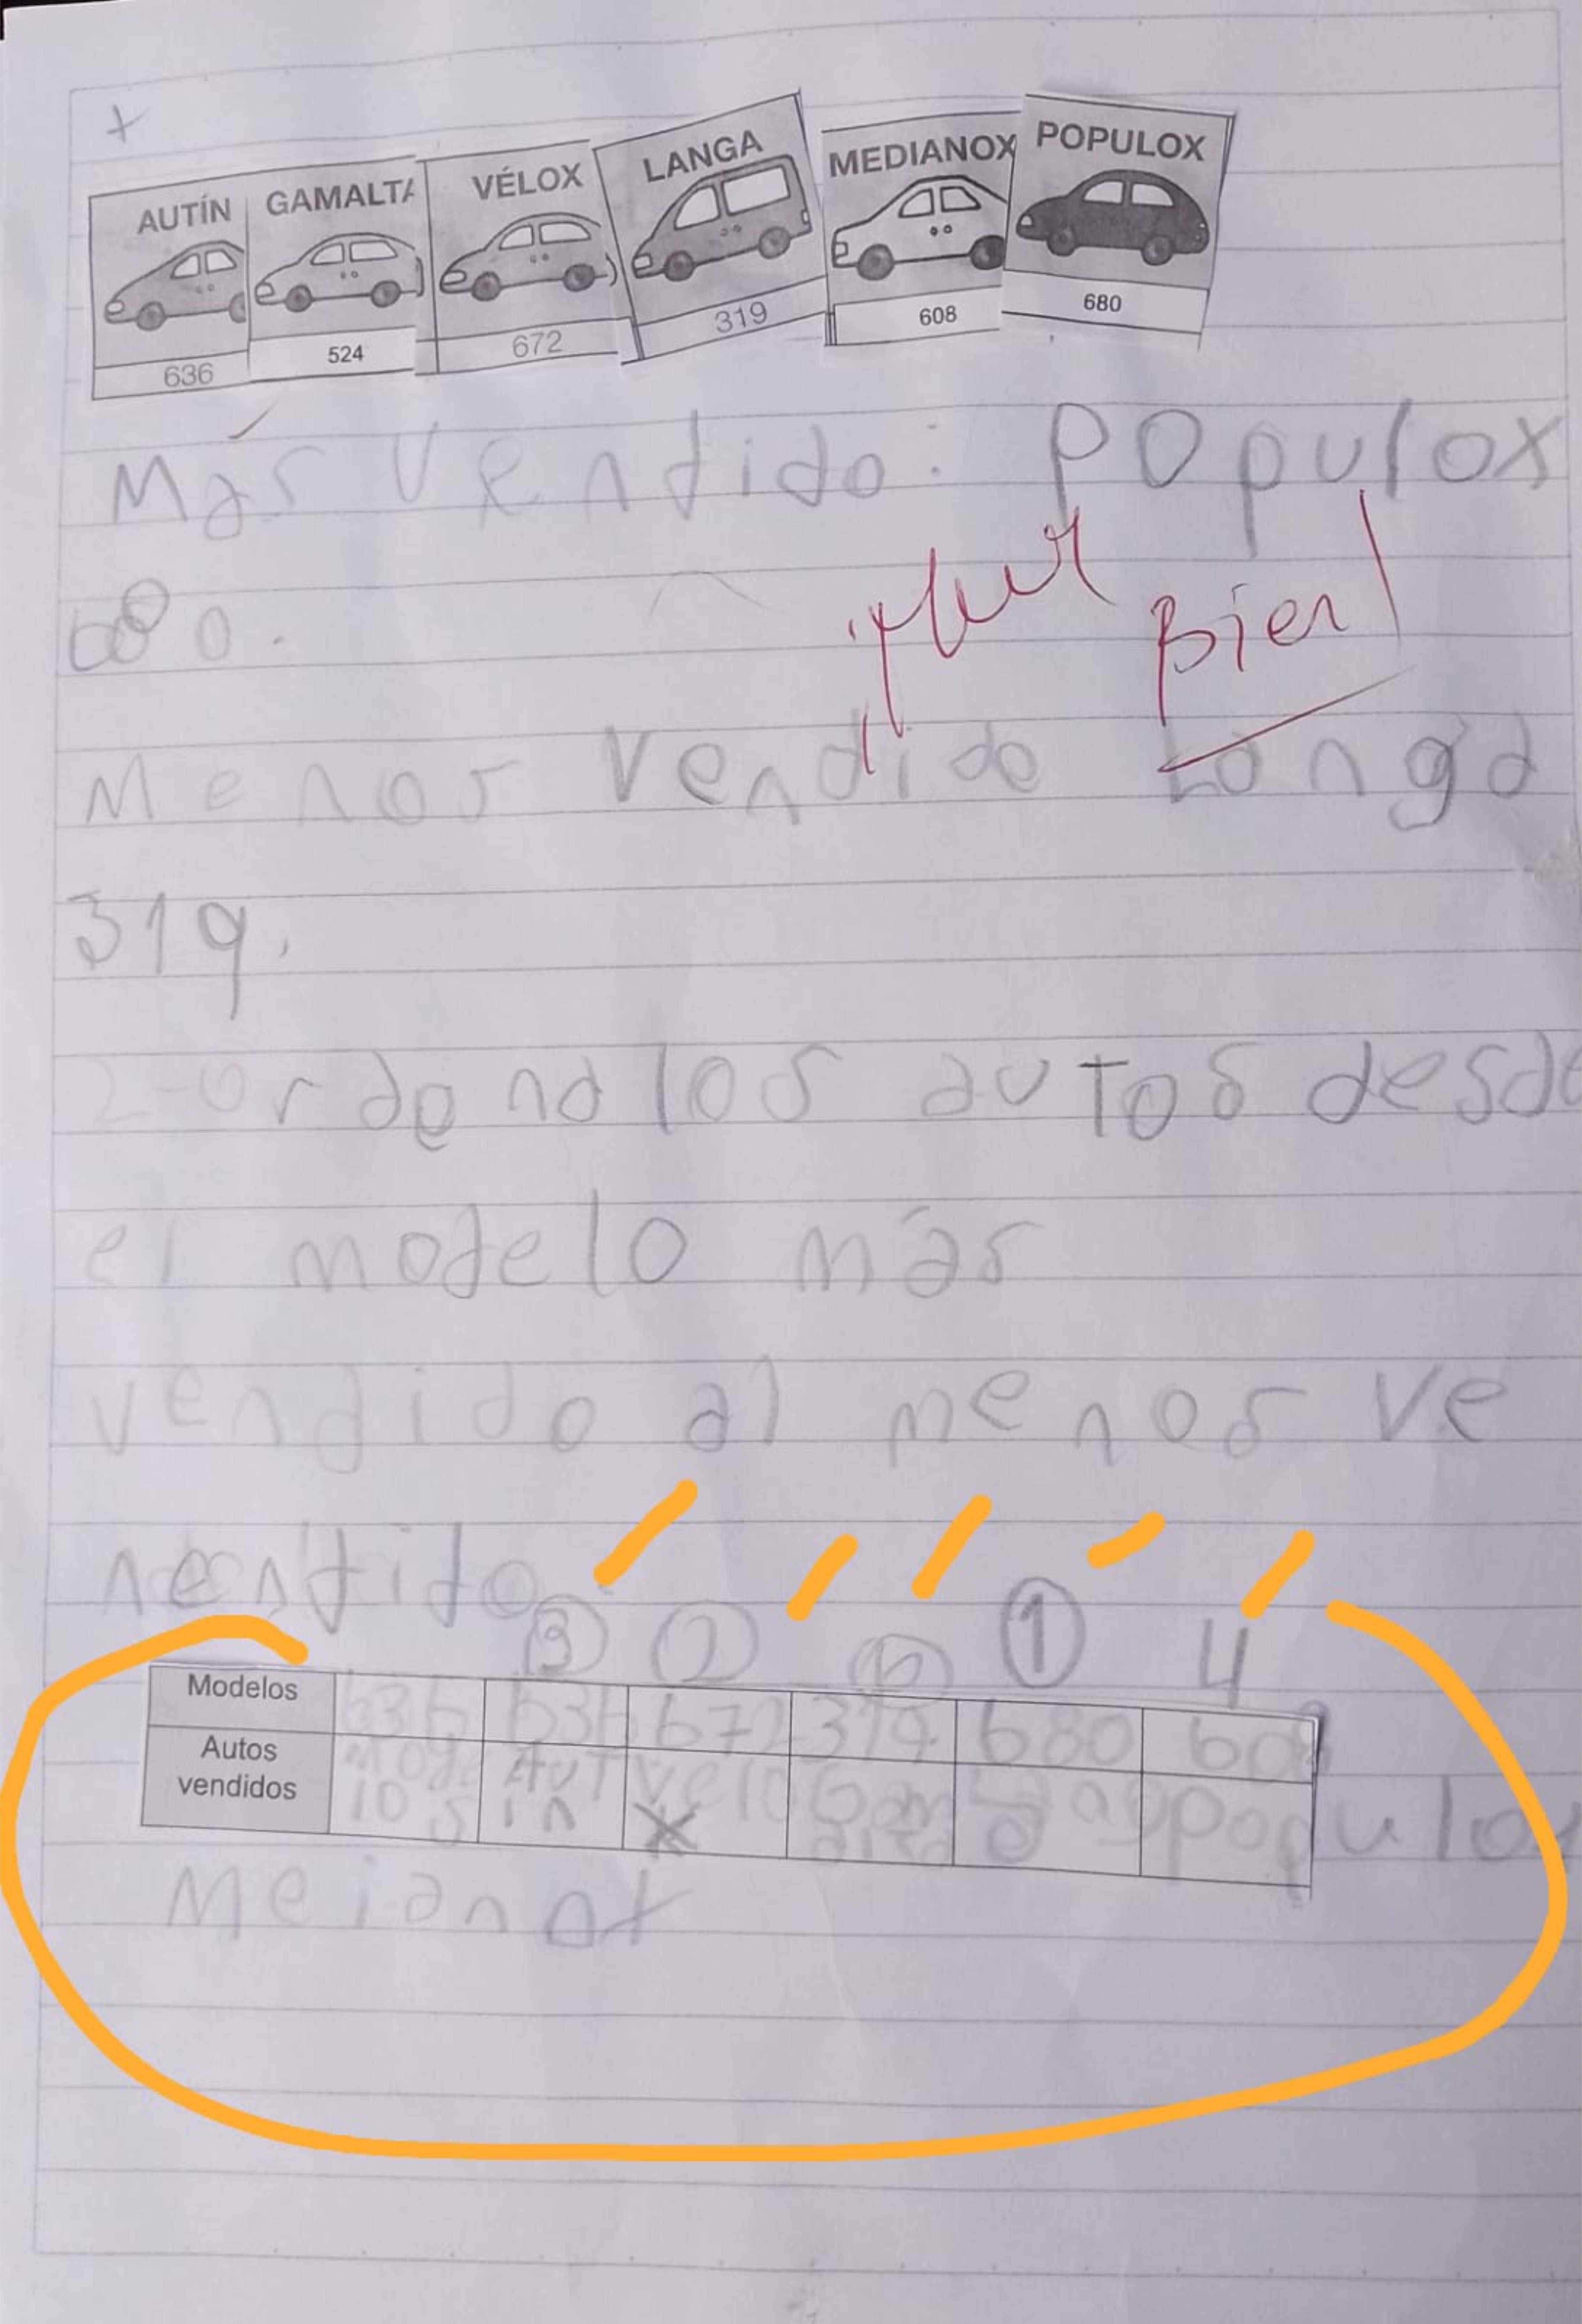 AUTÍN GAMALTA VÉLOX LANGA MEDIANOX POPULOX
636 524 672 319 608 680
Más Vendido: Populox
680.
¡Muy Bien!
Menos Vendido Langa
319.
2-Ordena los autos desde
el modelo más
vendido al menos ve
ntido
3 2 1 4
Modelos 636 636 672 319 680 608
Autos
vendidos
Aut Velo populox
in X
Meianox